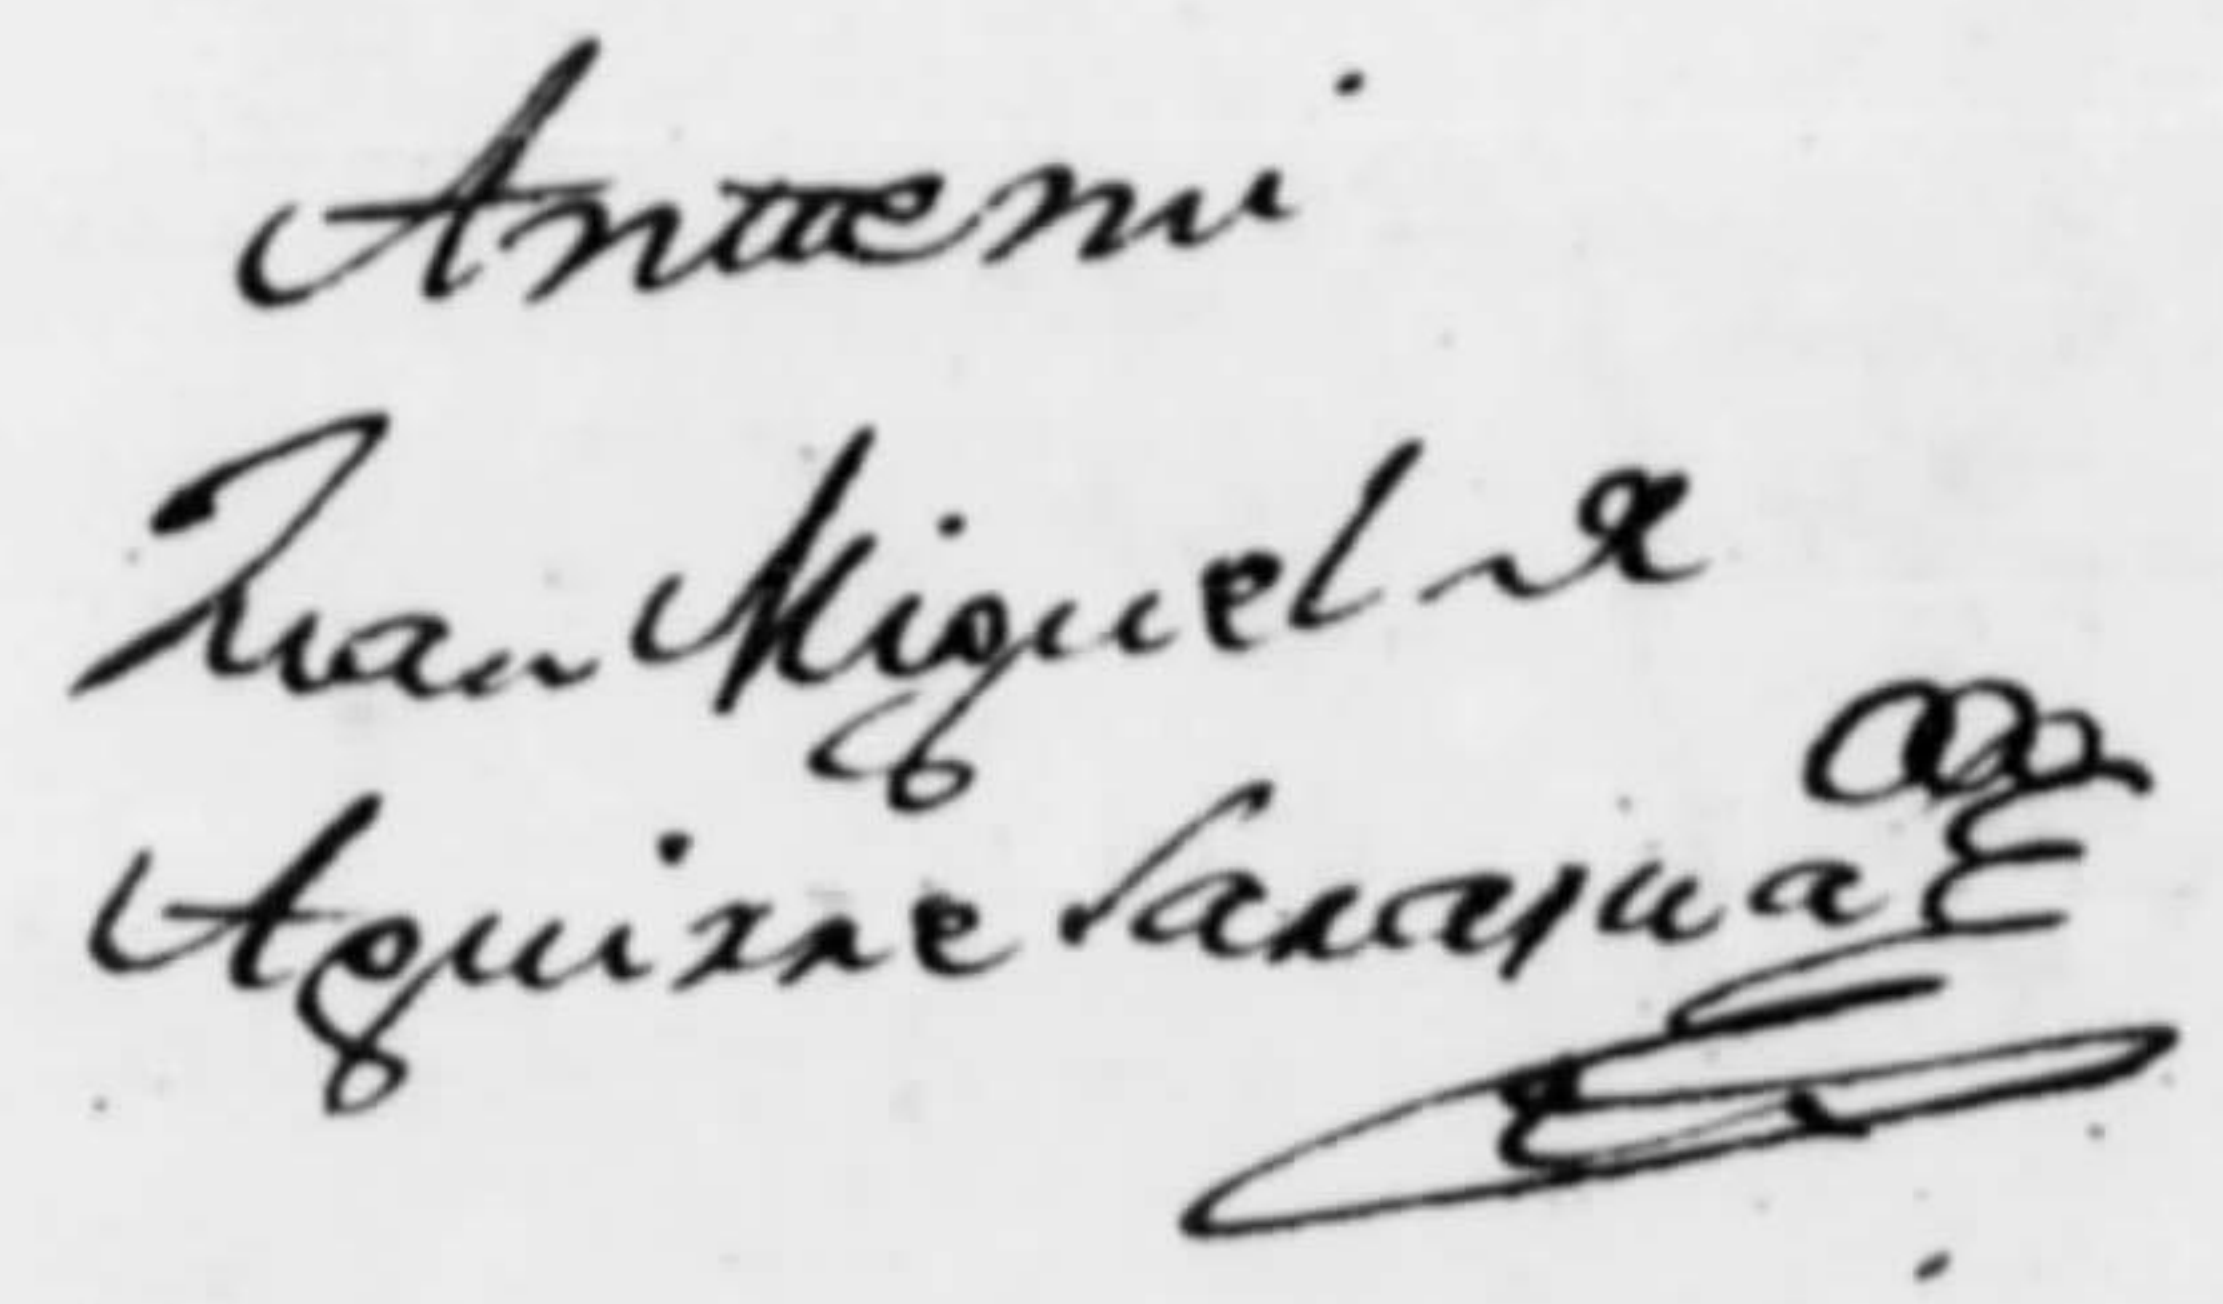 Anttemi
Juan Miguel de
Aguirre Sarayua